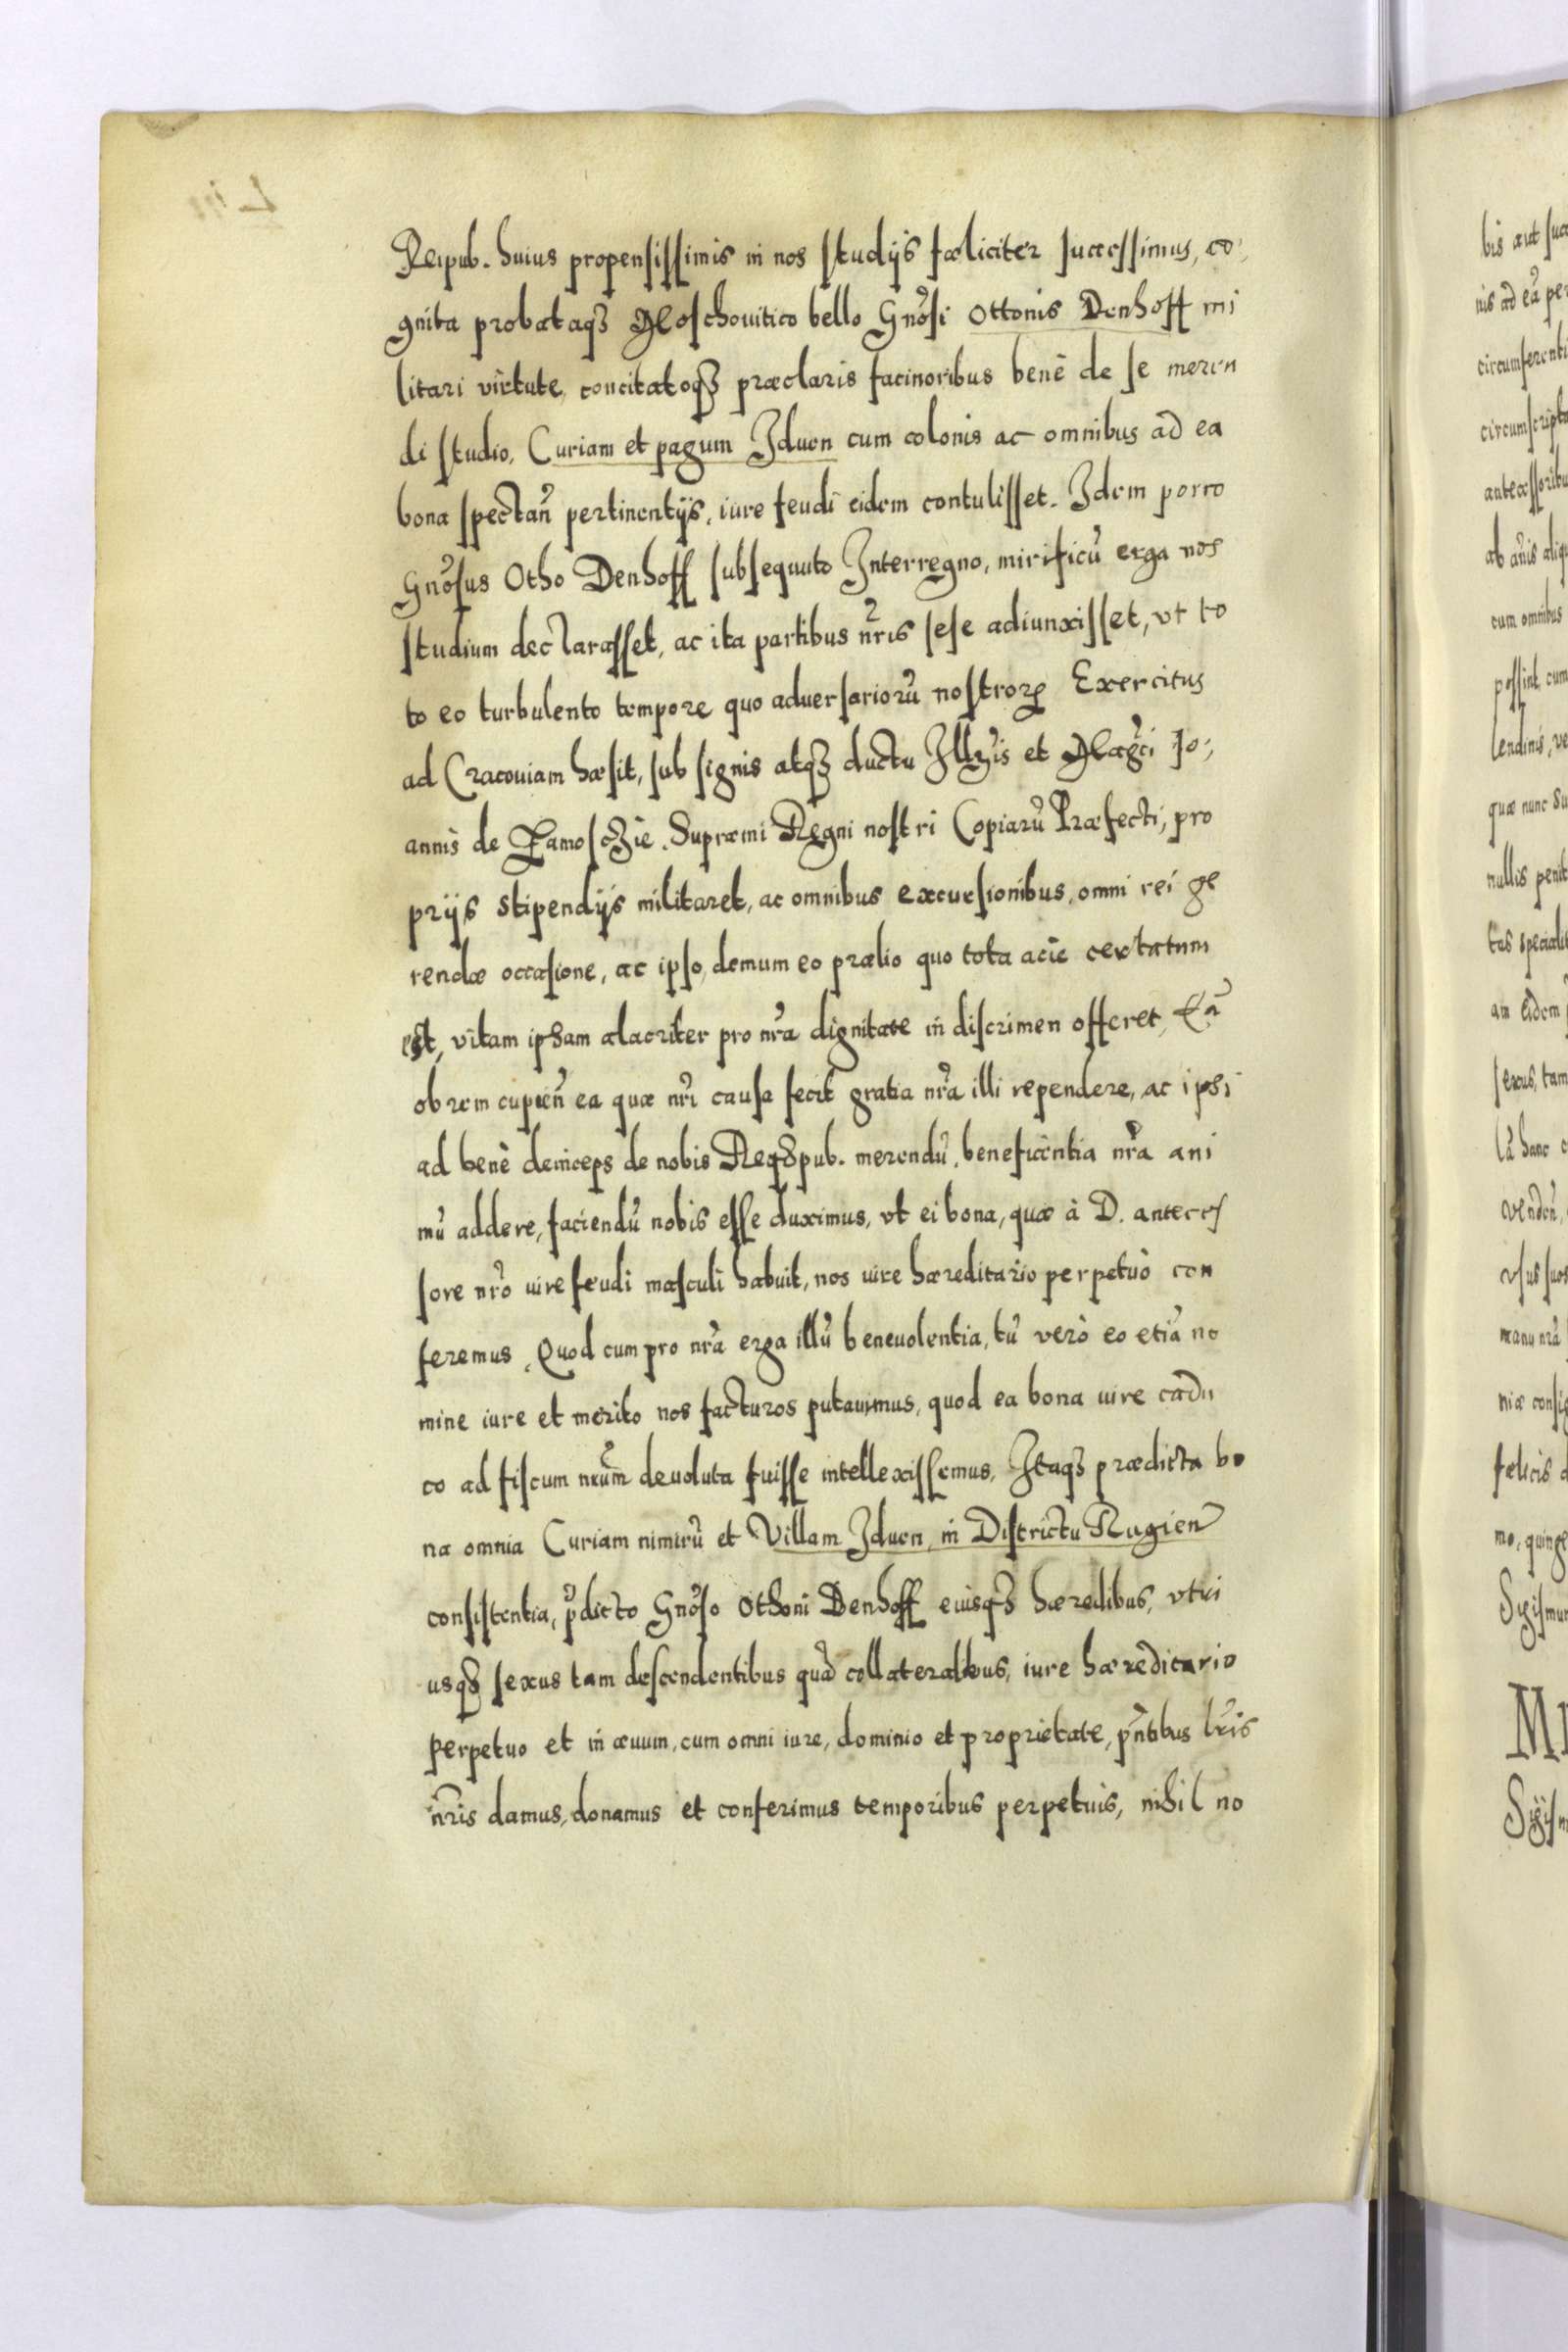 Reipub. huius propensissimis in nos studijs fæliciter successimus, co,
gnita probataqȝ Moschouitico bello Gnõsi Ottonis Denhoff mi
litari virtute, concitatoqȝ præclaris facinoribus benè de se meren
di studio, Curiam et pagum Iduen cum colonis ac omnibus ad ea
bona spectañ pertinentijs, iure feudi eidem contulisset. Idem porro
Gnõsus Otho Denhoff subsequuto Interregno, mirificũ erga nos
studium declarasset, ac ita partibus nr̃is sese adiunxisset, vt to
to eo turbulento tempore quo aduersariorũ nostroꝝ Exercitus
ad Cracouiam hæsit, sub signis atqȝ ductu Illr̃is et Mag̃ci Jo,
annis de Zamosczie. Supræmi Regni nostri Copiarũ Præfecti, pro
prijs stipendijs militaret, ac omnibus excursionibus, omni rei ge
rendæ occasione, ac ipso, demum eo prælio quo tota acie certatum
est, vitam ipsam alacriter pro nr̃a dignitate in discrimen offeret, Eã
obrem cupieñ ea quæ nr̃i causa fecit gratia nr̃a illi rependere, ac ipsi
ad benè deinceps de nobis Reqȝpub. merendũ, beneficentia nr̃a ani
mũ addere, faciendũ nobis esse duximus, vt ei bona, quæ à D. anteces
sore nr̃o iure feudi masculi habuit, nos iure hæreditario perpetuò con
feremus, Quod cum pro nr̃a erga illũ beneuolentia, tũ verò eo etiã no
mine iure et merito nos facturos putauimus, quod ea bona iure cadu
co ad fiscum nr̃um deuoluta fuisse intellexissemus, Itaqȝ prædicta bo
na omnia Curiam nimirũ et Villam Iduen, in Districtu Rugieñ
consistentia, p̃dicto Gnõso Othoni Denhoff eiusqȝ hæredibus, vtri
usqȝ sexus tam descendentibus quã collateralibus, iure hæreditario
perpetuo et in æuum, cum omni iure, dominio et proprietate, p̃ntibus lr̃is
nr̃is damus, donamus et conferimus temporibus perpetuis, nihil no